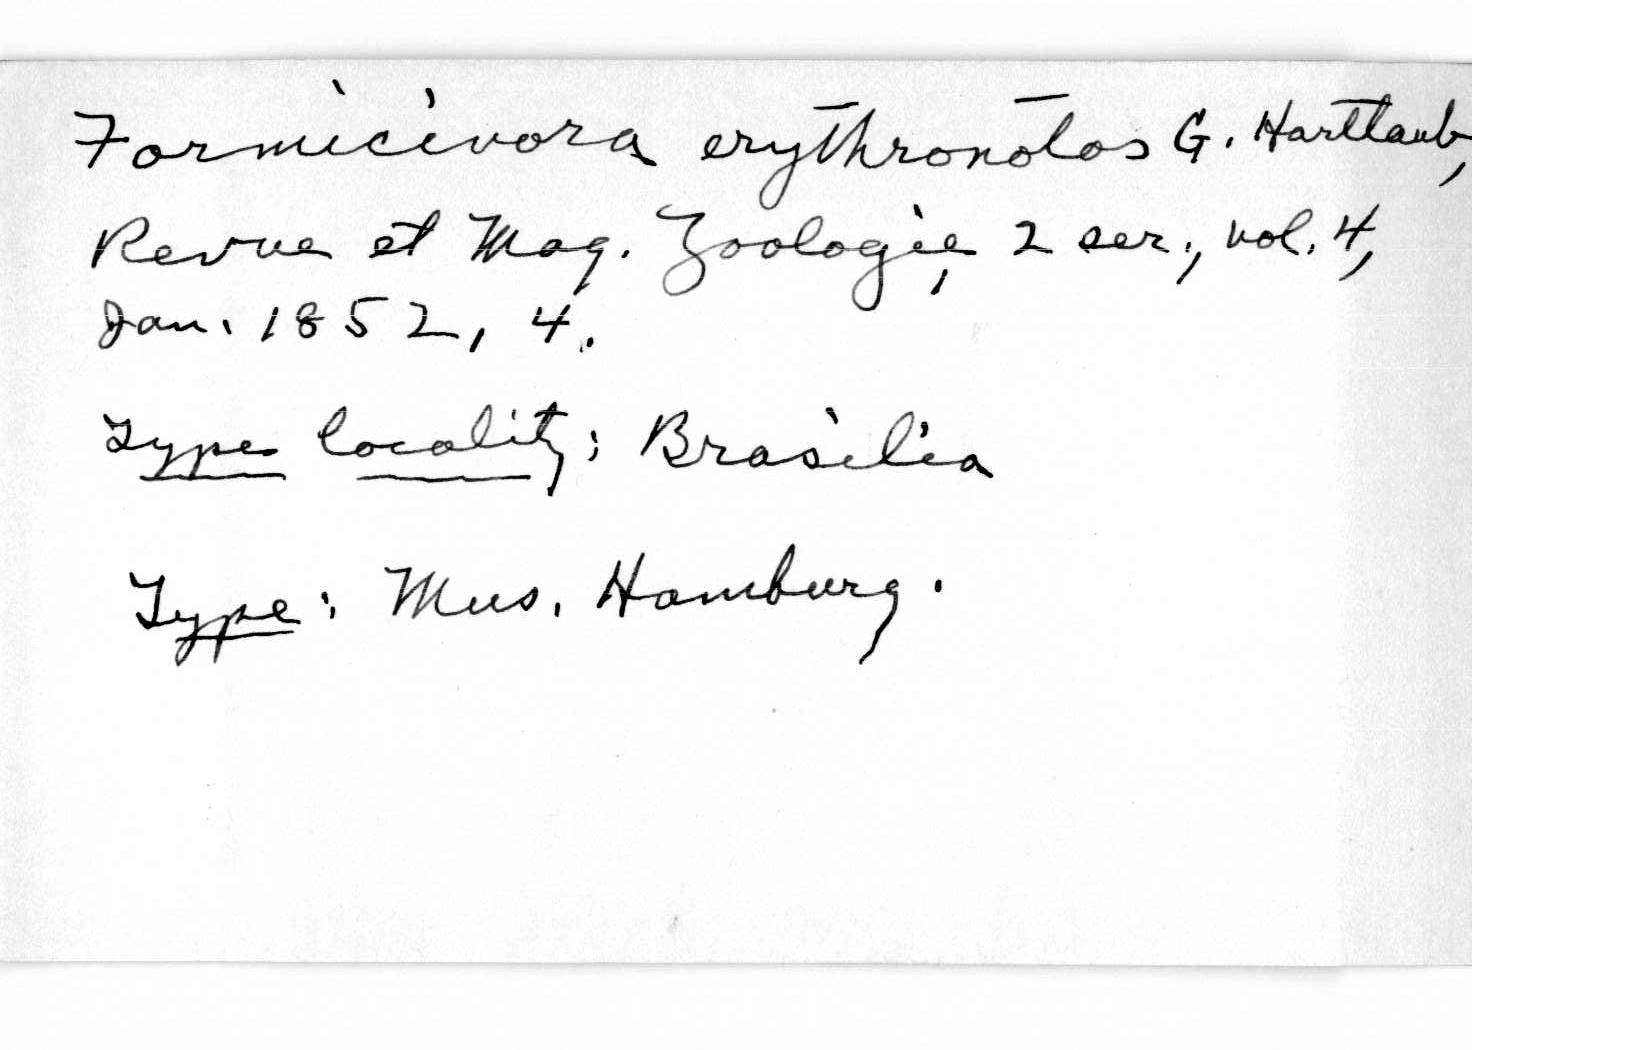 Formicivora erythronotos G. Hartlaub,
Revue et Mag. Zoologie, 2 ser., vol. 4,
Jan. 1852, 4.
Type locality: Brasilia
Type: Mus. Hamburg.